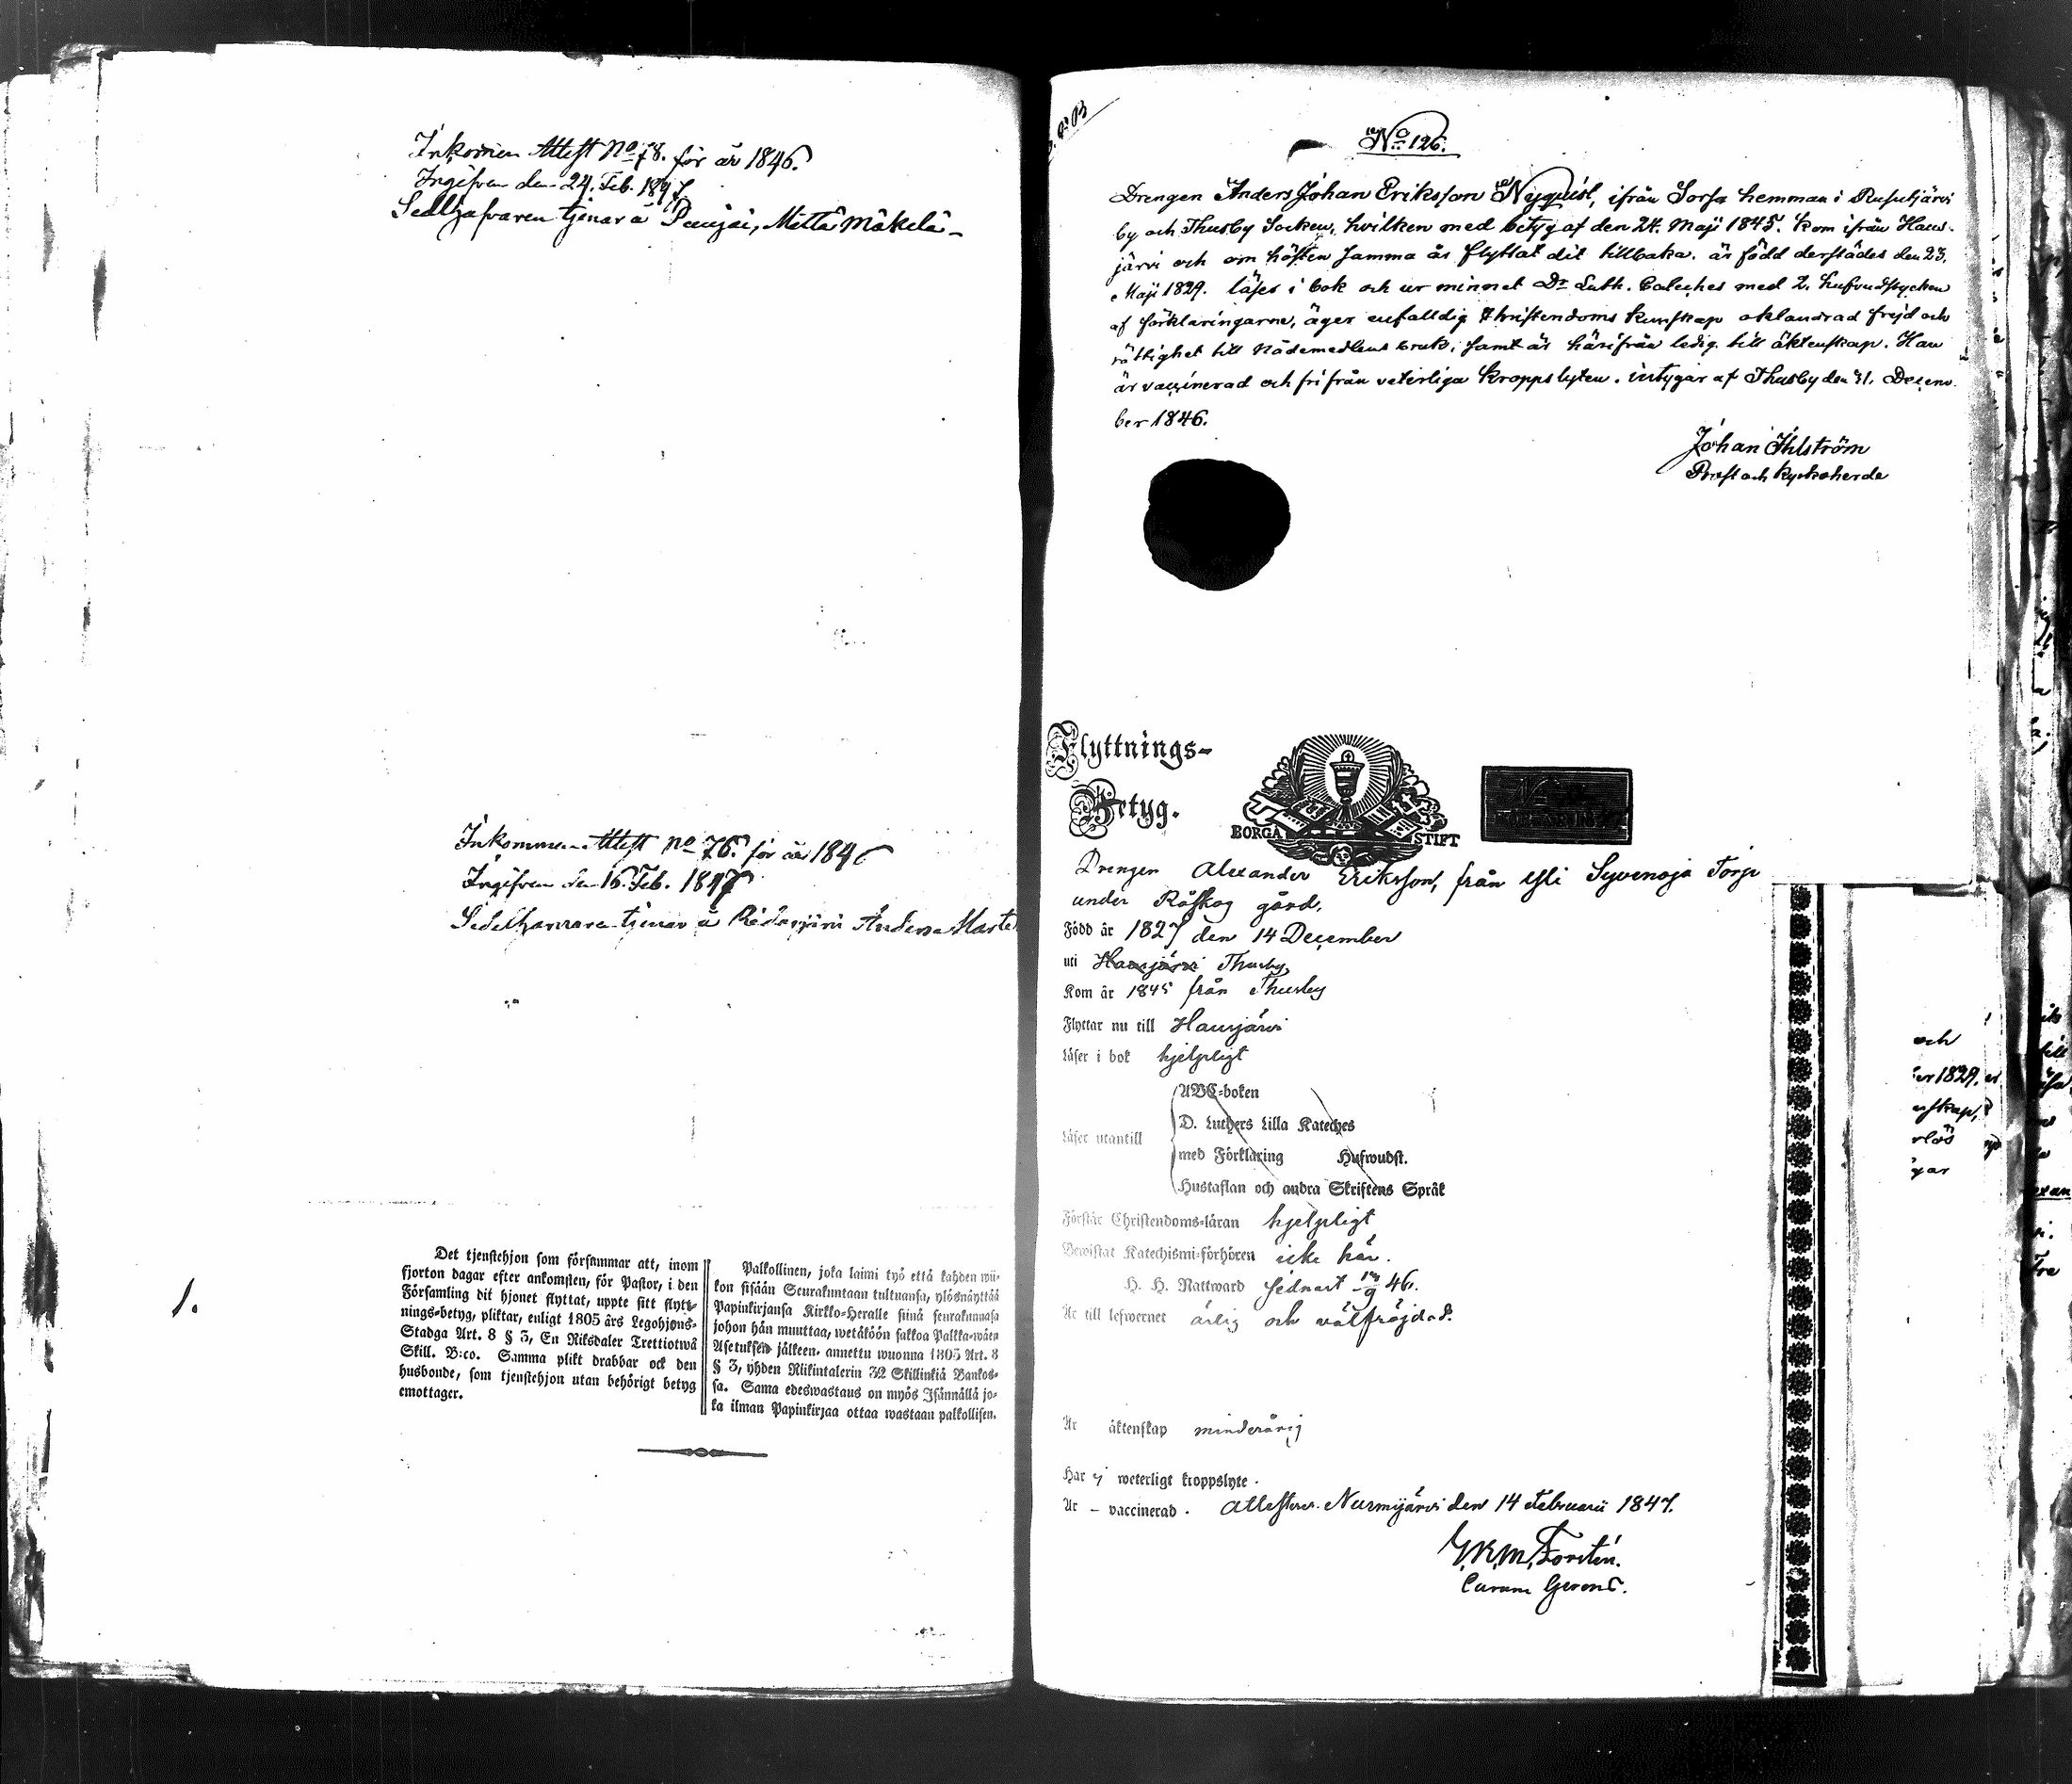 Inkommen Attest No 78. för år 1846.
Ingifven den 24. Feb. 1847
Sedelhafvaren tjenar å Mattä Mäkelä
Inkommen Attest No 76. för år 1846
Ingifven den 16. Feb. 1847
Sedelhafvaren tjenar å Anders
1.
Det tjenstehjon som försummar att, inom
fjorton dagar efter ankomsten, för Pastor, i den
Församling dit hjonet flyttat, uppte sitt flytt-
nings-betyg, pliktar, enligt 1805 års Legohjons-
Stadga Art. 8 § 3, En Riksdaler Trettiotwå
Skill. B:co. Samma plikt drabbar ock den
husbonde, som tjenstehjon utan behörigt betyg
emottager.
Palkollinen, joka laimi lyö että kahden wii-
kon sisään Seurakuntaan tultuansa, ylösnäyttää
Papinkirjansa Kirkko-Heralle siinä seurakunnasa
johon hän muuttaa, wetäköön sakkoa Palkka-wäen
Asetuksen jälkeen, annettu wuonna 1805 Art. 8
§ 3, yhden Riikintalerin 32 Skillinkiä Bankos-
sa. Sama edeswastaus on myös Isännällä jo-
ka ilman Papinkirjaa ottaa wastaan palkollisen.
No 126.
Drengen Anders Johan Eriksson Nyquist, ifrån Sorsa hemman i Rusutjärvi
by och Thusby Socken, hvilken med betyg af den 24. Maji 1845. kom ifrån Haus-
järvi och om hösten samma år flyttat dit tillbaka, är född derstädes den 23.
Maji 1829. läser i bok och ur minnet Dr Luth. Cateches med 2. hufvudstycken
af förklaringarne, äger enfalldig Christendoms kunskap oklandrad frejd och
rättighet till Nådemedlens bruk, samt är härifrån ledig till äktenskap. Han
är vaccinerad och fri från veterliga kroppslyten. intygar af Thusby den 31. Decem-
ber 1846.
Johan Ihlström
Prost och Kyrkoherde
Flyttnings-
Betyg.
BORGÅ STIFT
Drengen Alexander Eriksson, från Yli Syvenoja Torp
under Röskog gård.
Född år 1827 den 14 December
uti Hausjärvi Thusby
Kom år 1845 från Thusby
Flyttar nu till Hausjärvi
Läser i bok hjelpligt
ABC-boken
D. Luthers Lilla Kateches
Läser utantill
med Förklaring Hufwudst.
Hustaflan och andra Skriftens Språk
Förstår Christendoms-läran hjelpligt
Bewistat Katechismi-förhören icke här.
H. H. Nattward sednast 46.
Är till lefwernet ärlig och välfräjdad.
Är äktenskap minderårig
Har ej weterligt kroppslyte.
Är – vaccinerad. Attesterar Nurmijärvi den 14 Februarii 1847.
Forstén.
Curam Gerens.
och
1829.